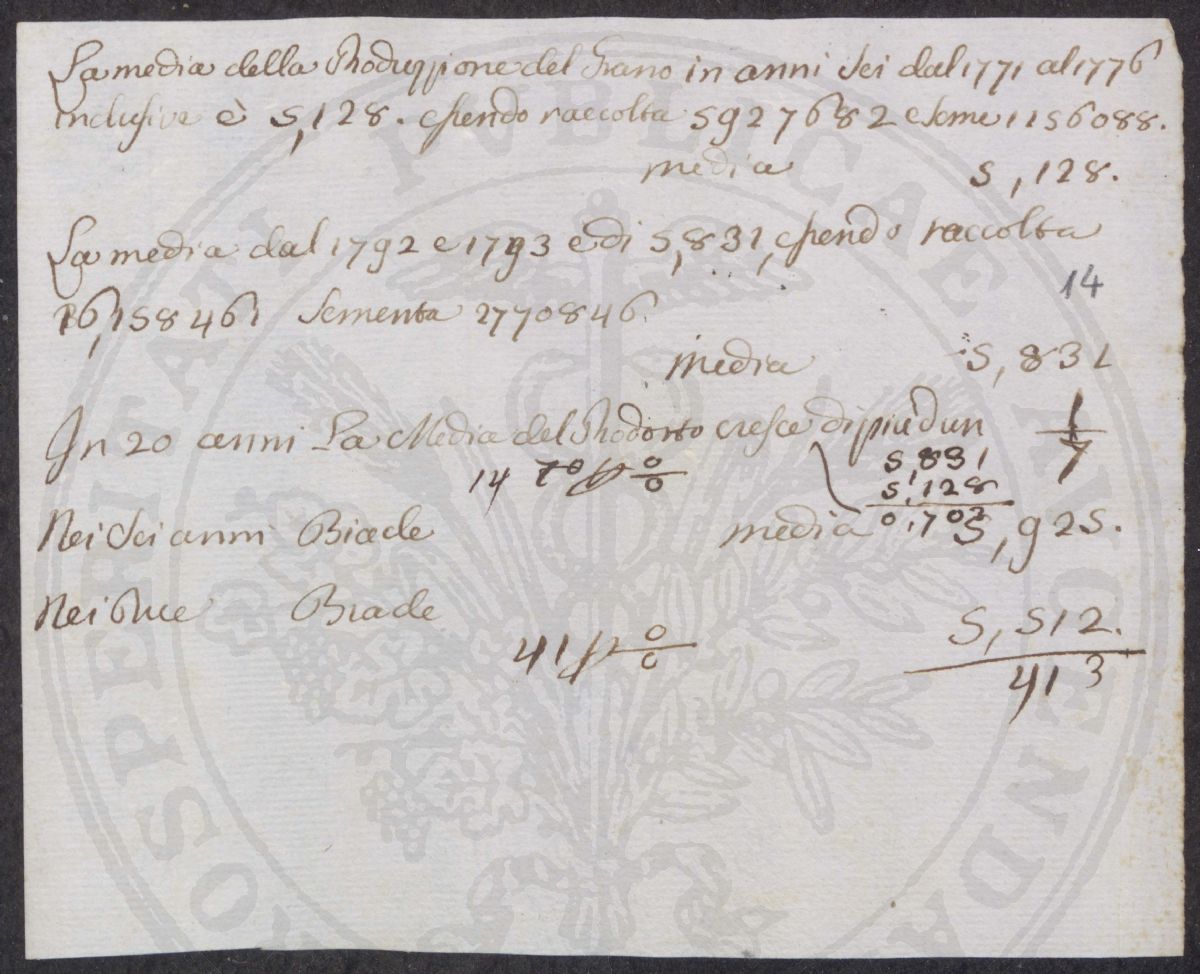 La media della Produzzione del Grano in anni sei dal 1771 al 1776
inclusive è 5,128. essendo raccolta 5927682 e seme 1156088.
media 5,128.
La media dal 1792 e 1793 è di 5,831, essendo raccolta
14
16,158461 Sementa 2770846.
media 5,831
In 20 anni La Media del Prodotto cresce di più d'un 1/7
14 p 0/0
5,831
5,128
0,702
Nei sei anni Biade media 5,925.
Nei due Biade 5,512.
41 p 0/0
413
PROSPERITATI PVBLICAE AVGENDAE